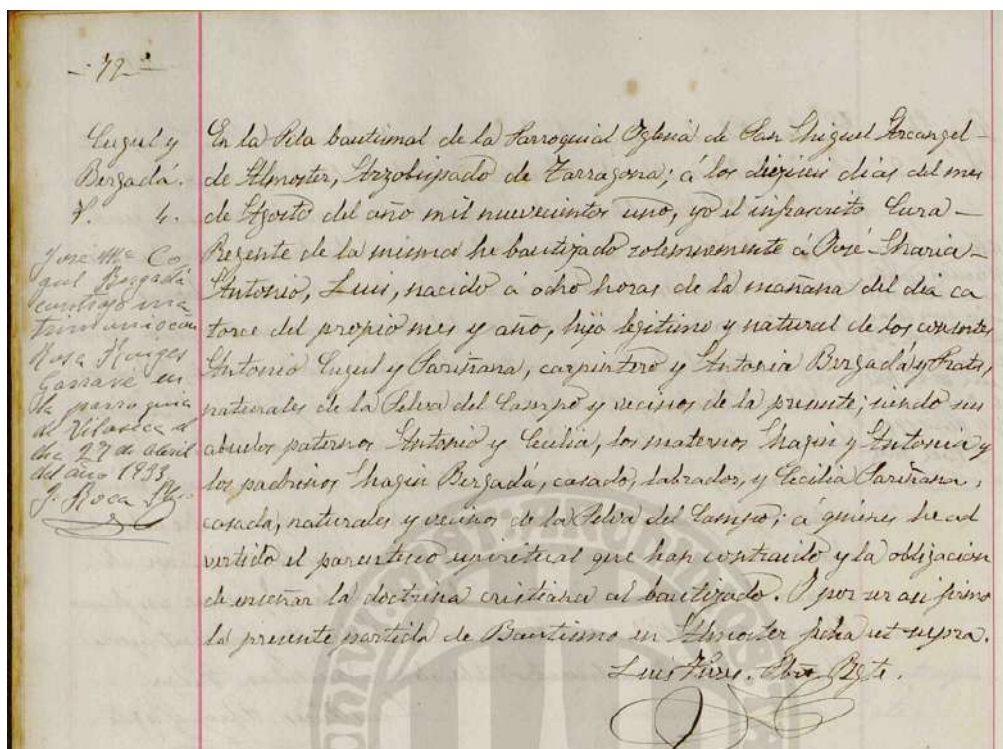 72
Cugul y
Bergadá.
V. 4.
José Mª Co
gul Bergadá
contrajo ma
trimonio con
Rosa
en
la parroquia
de Vilaseca el
dia 27 de abril
del año 1933
J. Roca Pbro
En la Pila bautismal de la Parroquial Yglesia de San Miguel Arcangel
de Almoster, Arzobispado de Tarragona; á los dieziseis dias del mes
de Agosto del año mil nuevecientos uno, yo el infrascrito Cura
Regente de la misma he bautizado solemnemente á José Maria
Antonio, Luis, nacido á ocho horas de la mañana del dia ca
torce del propio mes y año, hijo legitimo y natural de los consortes
Antonio Cugul y Sariñana, carpintero y Antonia Bergadá y Prats,
naturales de la Selva del Campo y vecinos de la presente; siendo sus
abuelos paternos Antonio y Cecilia, los maternos Magin y Antonia y
los padrinos Magin Bergadá, casado, labrador, y Cecilia Sariñana,
casada, naturales y vecinos de la Selva del Campo; á quienes he ad
vertido el parentesco espiritual que han contraido y la obligacion
de enseñar la doctrina cristiana al bautizado. Y por ser asi firmo
la presente partida de Bautismo en Almoster fecha ut supra.
Luis Pbro Rgte.